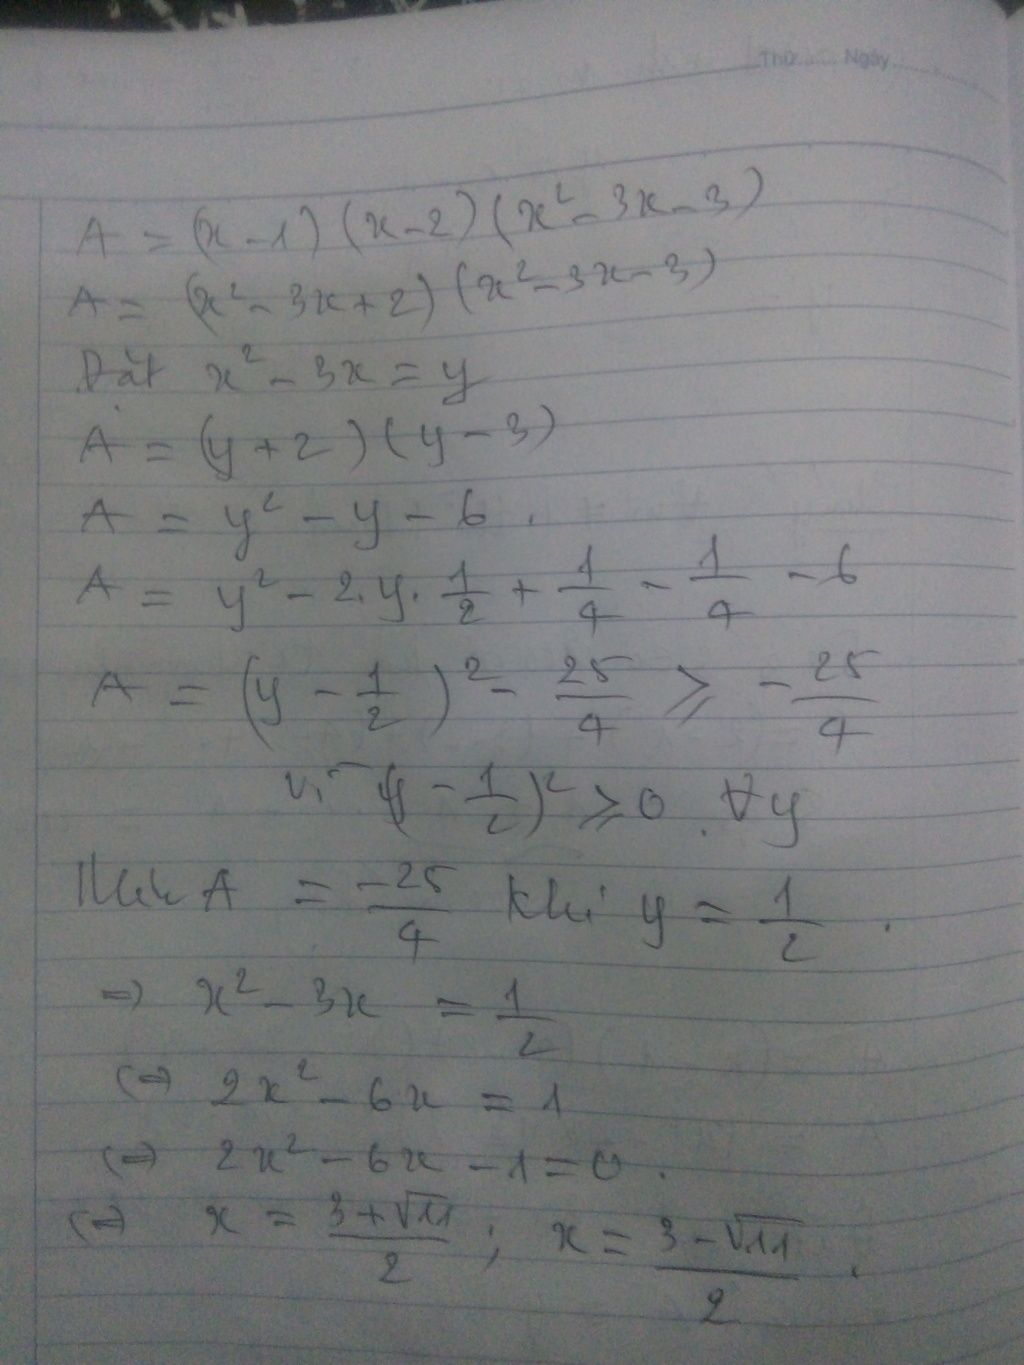 Thứ Ngày
A = (x - 1) (x - 2) (x² - 3x - 3)
A = (x² - 3x + 2) (x² - 3x - 3)
Đặt x² - 3x = y
A = (y + 2) (y - 3)
A = y² - y - 6.
A = y² - 2.y. 1/2 + 1/4 - 1/4 - 6
A = (y - 1/2)² - 25/4 ⩾ - 25/4
vì (y - 1/2)² ⩾ 0 ∀y
A = -25/4 khi y = 1/2.
⇒ x² - 3x = 1/2
⇔ 2x² - 6x = 1
⇔ 2x² - 6x - 1 = 0.
⇔ x = (3 + √11)/2 ; x = (3 - √11)/2.